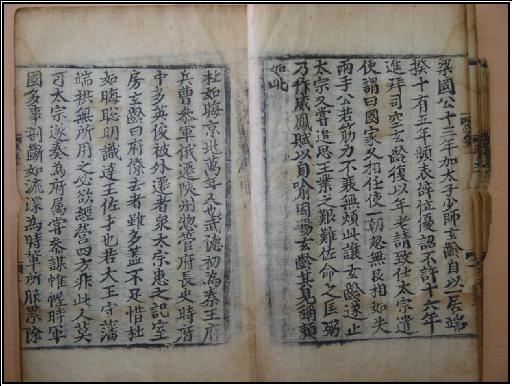 梁國公十三年加太子少師玄齡自以一居端
揆十有五年頻表辭位優詔不許十六年
進拜司空玄齡復以年老請致仕太宗遣
使謂曰國家久相任使一朝忽無良相如失
兩手公若筋力不衰無煩此讓玄齡遂止
太宗又嘗追思王業之艱難佐命之匡弼
乃作威鳳賦以自喻因賜玄齡其見稱類
如此
杜如晦京兆萬年人也武德初為秦王府
兵曹參軍俄遷陝州惣管府長史時府
中多英俊被外遷者衆太宗患之記室
房玄齡曰府僚去者雖多蓋不足惜杜
如晦聡明識達王佐才也若大王守藩
端拱無所用之必欲經營四方非此人莫
可太宗遂奏為府屬嘗參謀帷幄時軍
國多事剖斷如流深為時輩所服累除